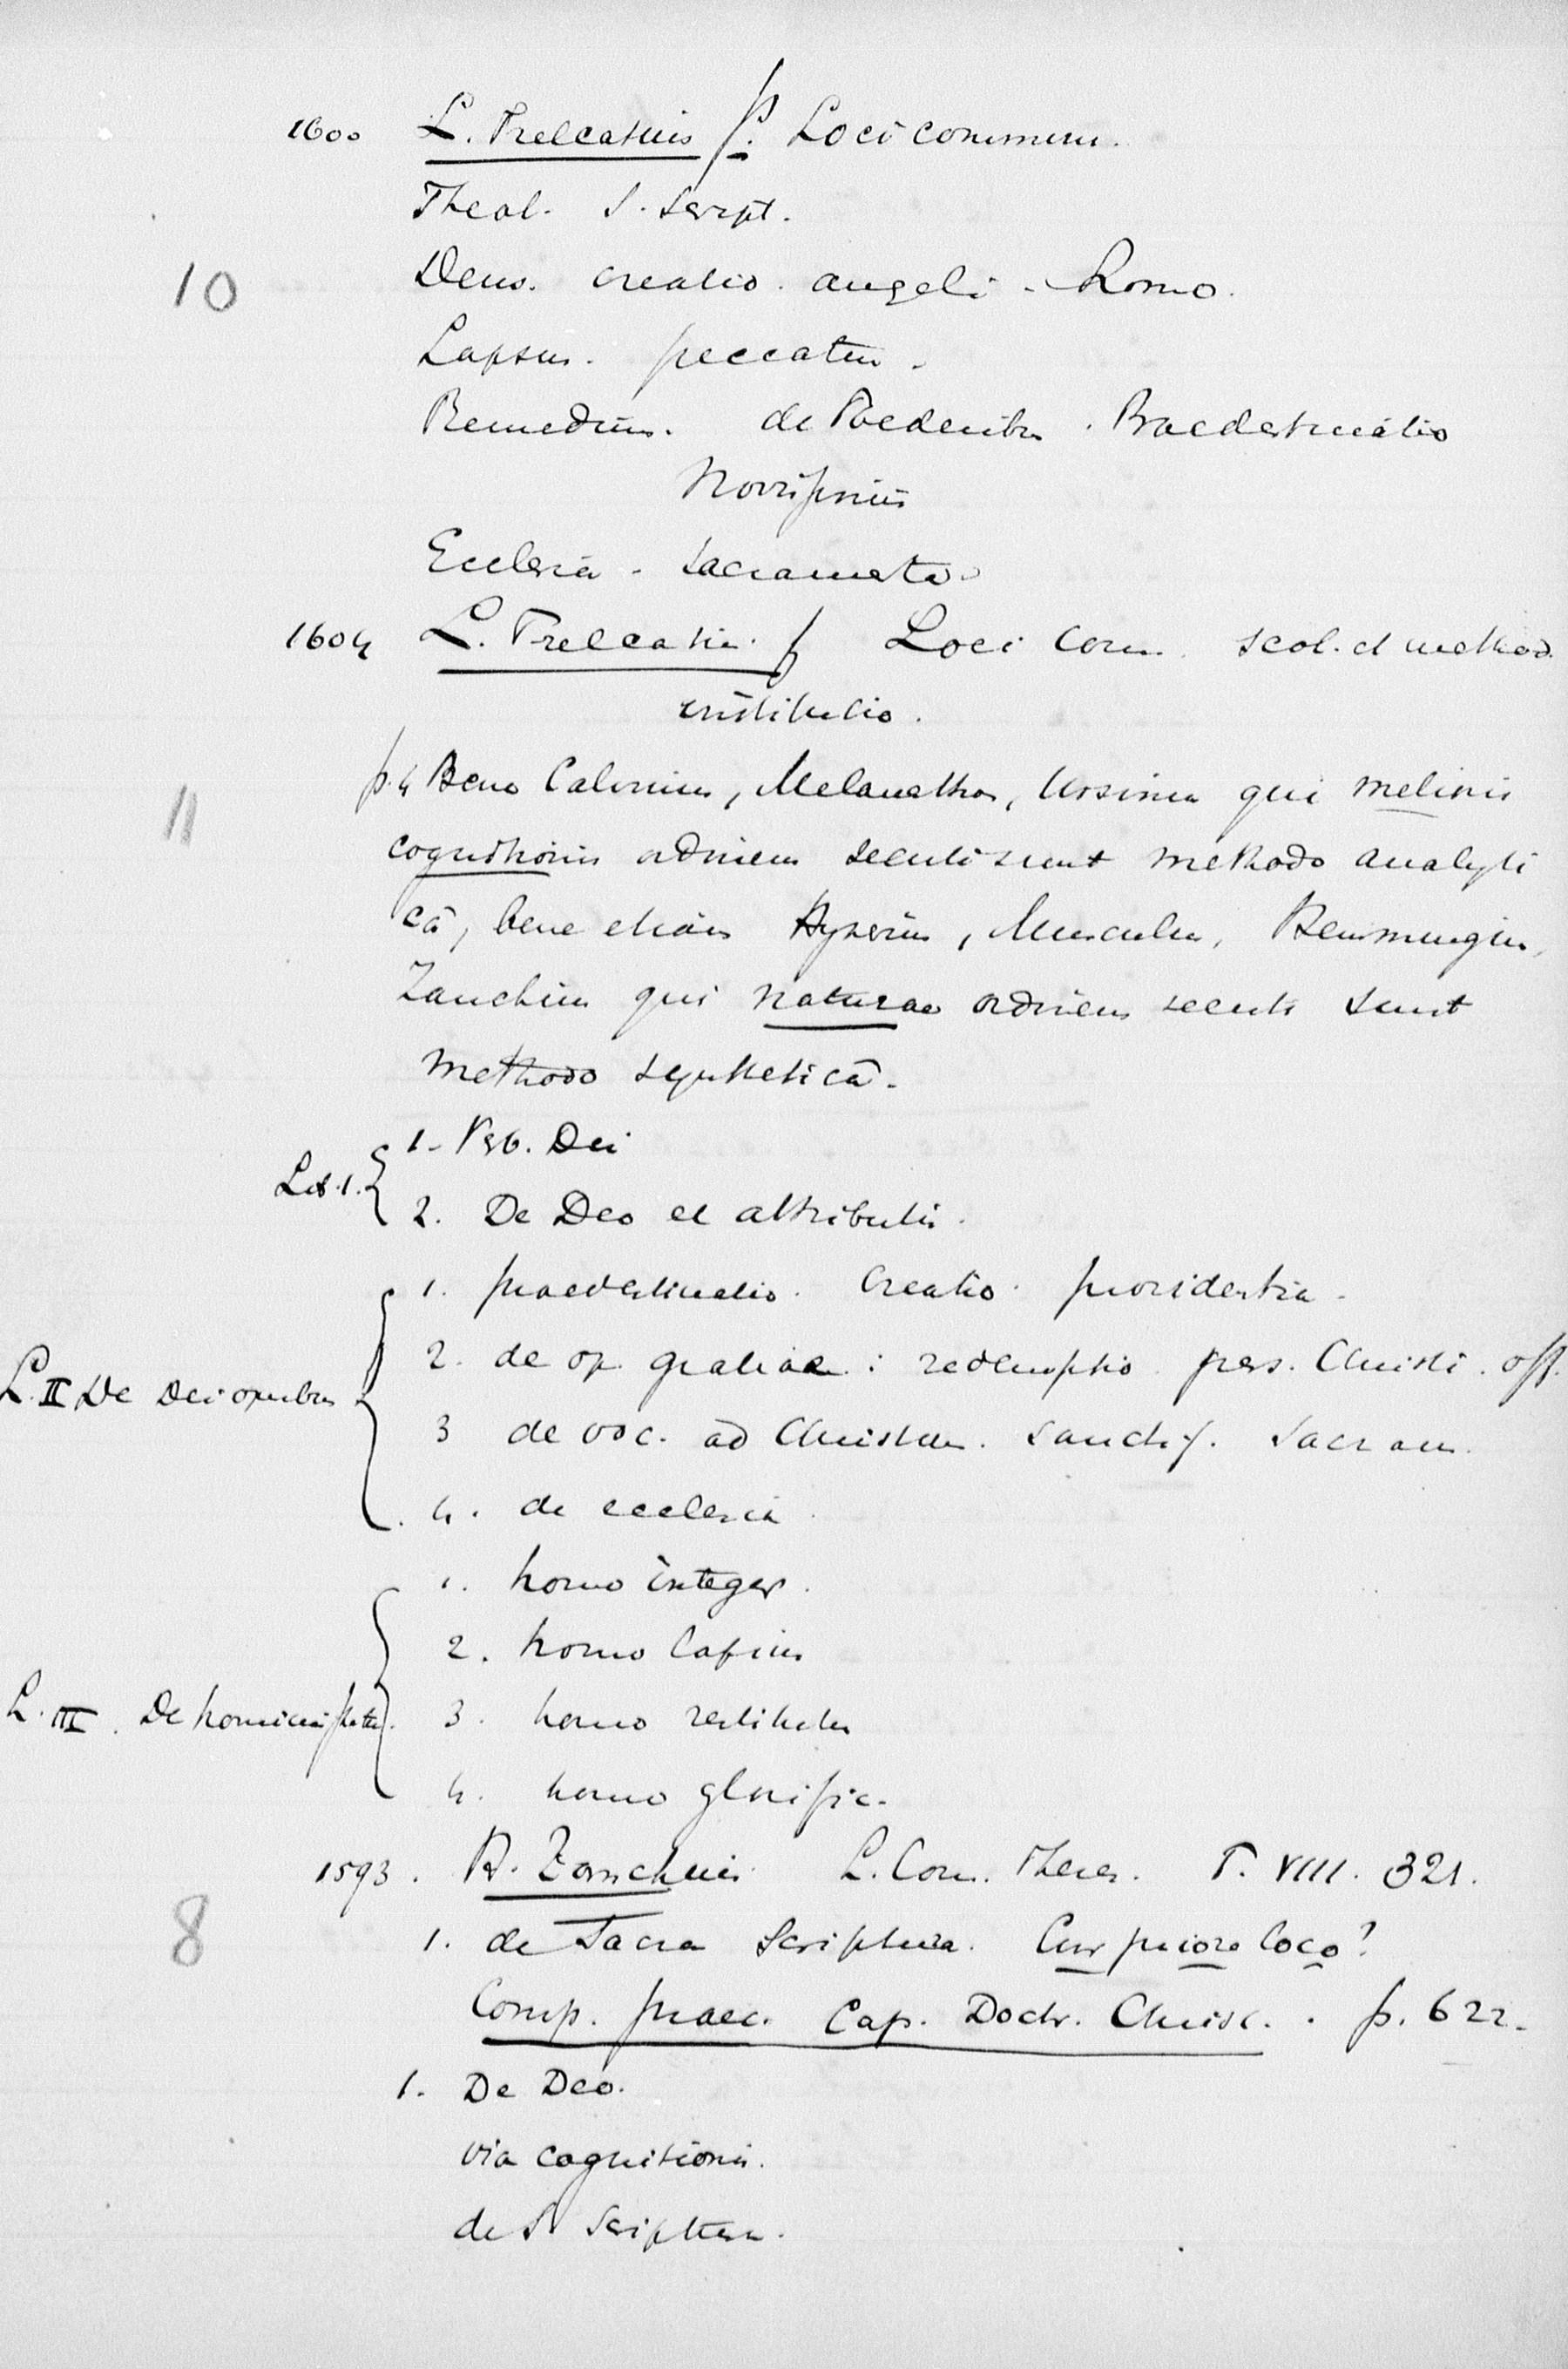 1600 L. Trelcatius p. Loci commun.
Theol. S. Script.
10 Deus. creatio. angeli. Homo.
Lapsus. peccatum.
Remedium. de Foederibus. Praedestinatio
Novissimis
Ecclesia. Sacramenta.
1604 L. Trelcatius f Loci Com. scol. et method.
institutio.
11 p. 4 Bene Calvinus, Melancthon, Ursinus qui melioris
cognitionis ordinem secuti sunt methodo analyti
câ, bene etiam Hyperius, Musculus, Hemmingius,
Zanchius qui naturae ordinem secuti sunt
methodo syntheticâ.
Lib. 1. 1. Vrb. Dei
2. De Deo et attributis.
1. praedestinatio. Creatio. providentia.
2. de op. gratiae: redemptio pers. Christi. off.
L. II De Dei operibus
3 de voc. ad Christum. Sanctif. Sacram.
4. de ecclesia
1. homo integer.
2. homo lapsus
L. III. De hominis 3. homo restitutus
4. homo glorific.
1593. H. Zanchius L. Com. Theol. T. VIII. 321.
8 1. de Sacra Scriptura. Cur priore loco?
Comp. praec. Cap. Doctr. Christ. . p. 622.
1. De Deo.
via cognitionis.
de S Scriptura.